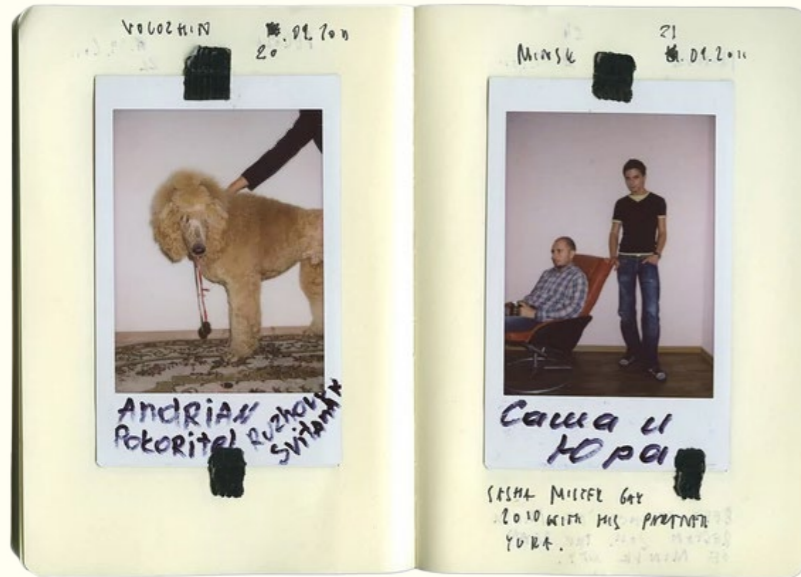 VOLOZHIN
20 .09.2011
ANDRIAN
Pokoritel
Ruzhovy
Svitanak
MINSK
21 .09.2011
Саша и
Юра
SASHA MISTER GAY
2010 WITH HIS PARTNER
YURA.